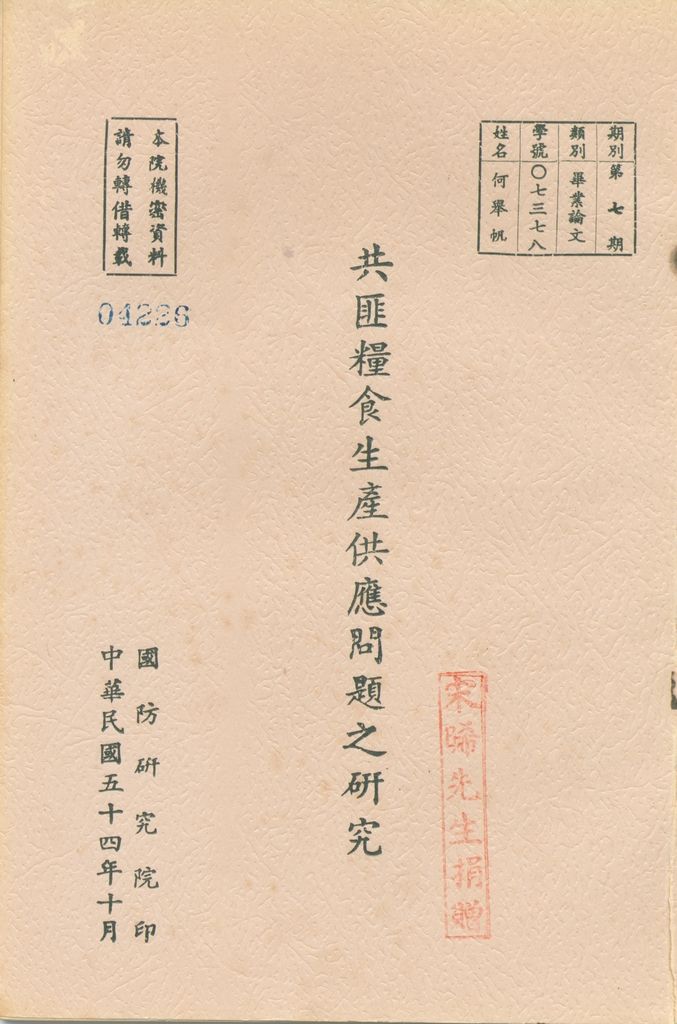 期別 第七期
類別 畢業論文
學號 〇七三七八
姓名 何舉帆
共匪糧食生產供應問題之研究
宋晞先生捐贈
本院機密資料
請勿轉借轉載
04226
國防研究院印
中華民國五十四年十月